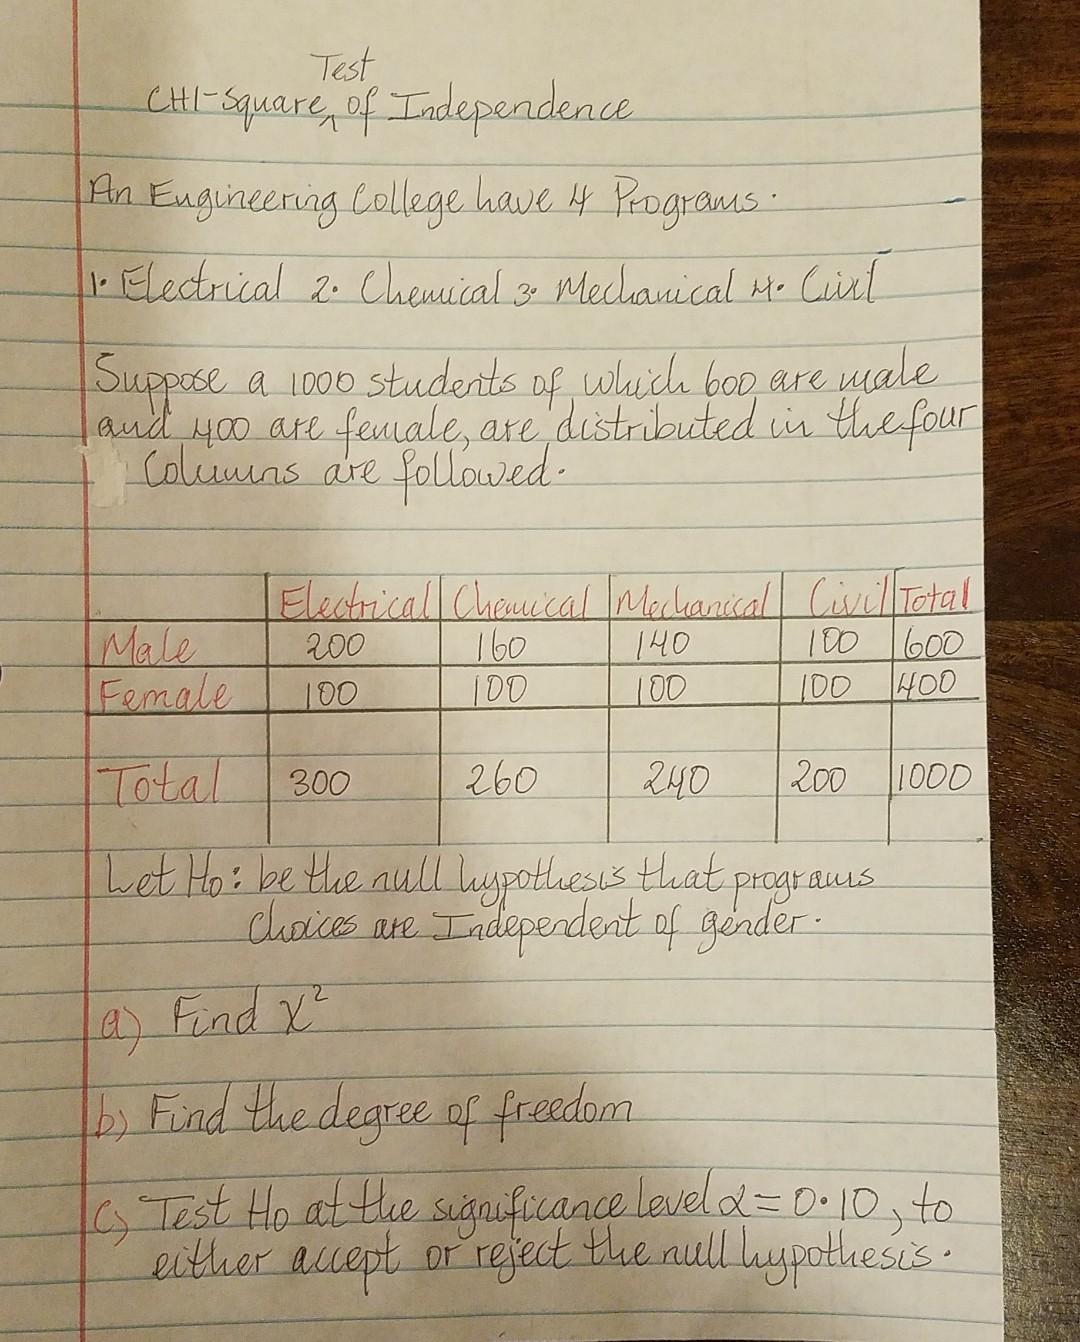 Test
CHI-Square ^ of Independence
An Engineering College have 4 Programs.
1. Electrical 2. Chemical 3. Mechanical 4. Civil
Suppose a 1000 students of which 600 are male
and 400 are female, are distributed in the four
Columns are followed.
Electrical Chemical Mechanical Civil Total
Male 200 160 140 100 600
Female 100 100 100 100 400
Total 300 260 240 200 1000
Let Ho: be the null hypothesis that programs
Choices are Independent of gender.
a) Find X²
b) Find the degree of freedom
c) Test Ho at the significance level α = 0.10, to
either accept or reject the null hypothesis.